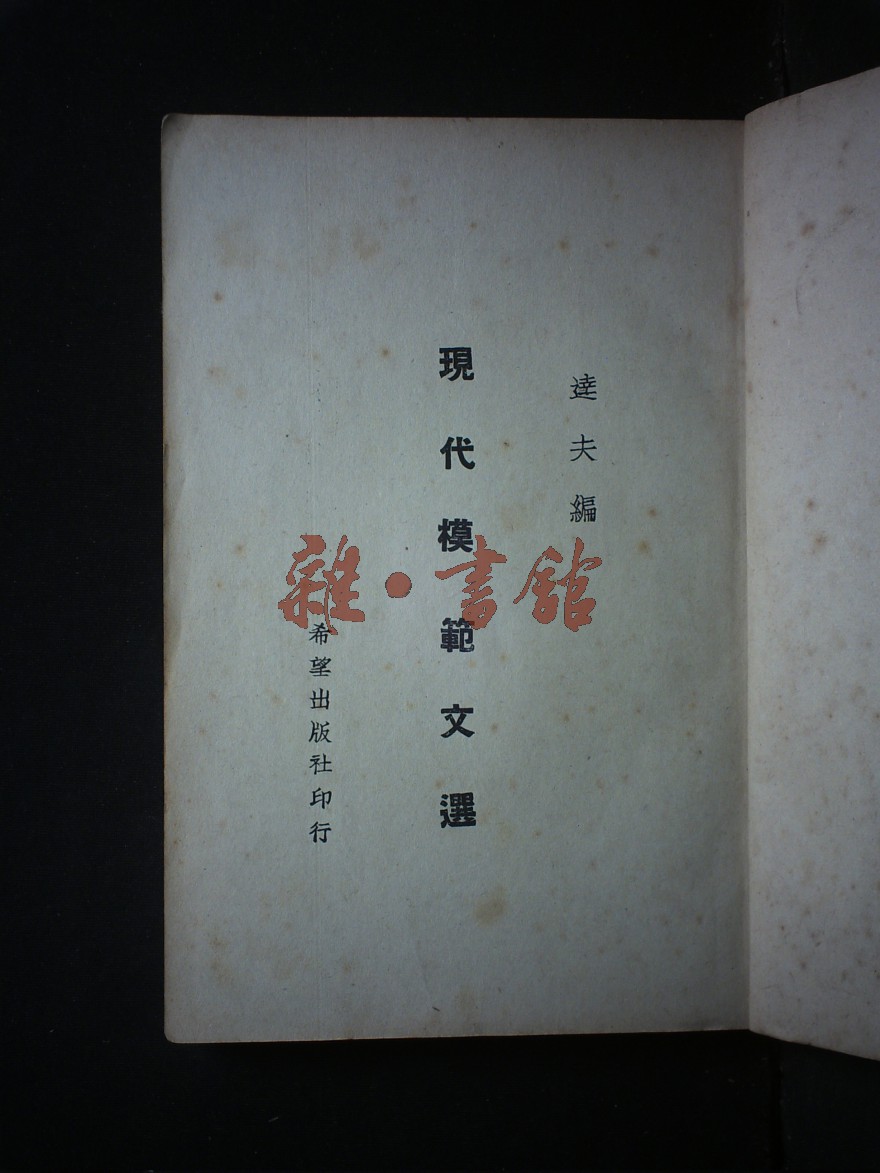 達夫編
現代模範文選
希望出版社印行
雜·書館